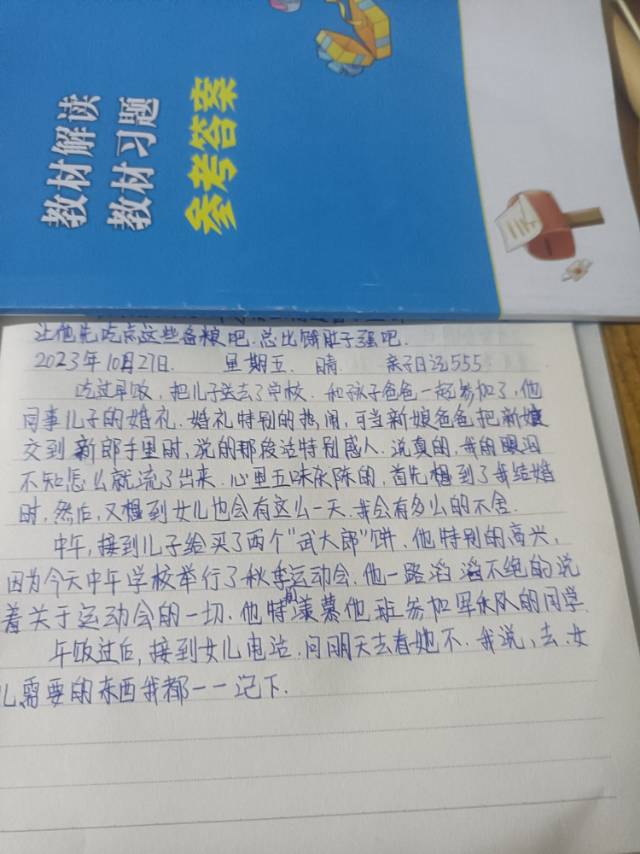 教材解读
教材习题
参考答案
让他先吃点这些备粮吧.总比饿肚子强吧.
2023年10月27日. 星期五. 晴. 亲子日记555
吃过早饭,把儿子送去了学校.和孩子爸爸一起参加了,他
同事儿子的婚礼.婚礼特别的热闹,可当新娘爸爸把新娘
交到新郎手里时,说的那段话特别感人.说真的,我的眼泪
不知怎么就流了出来.心里五味杂陈的,首先想到了我结婚
时,然后,又想到女儿也会有这么一天.我会有多么的不舍.
中午,接到儿子给买了两个"武大郎"饼.他特别的高兴,
因为今天中午学校举行了秋季运动会.他一路滔滔不绝的说
着关于运动会的一切.他特别羡慕他班参加军乐队的同学.
午饭过后,接到女儿电话.问明天去看她不.我说,去.女
儿需要的东西我都一一记下.